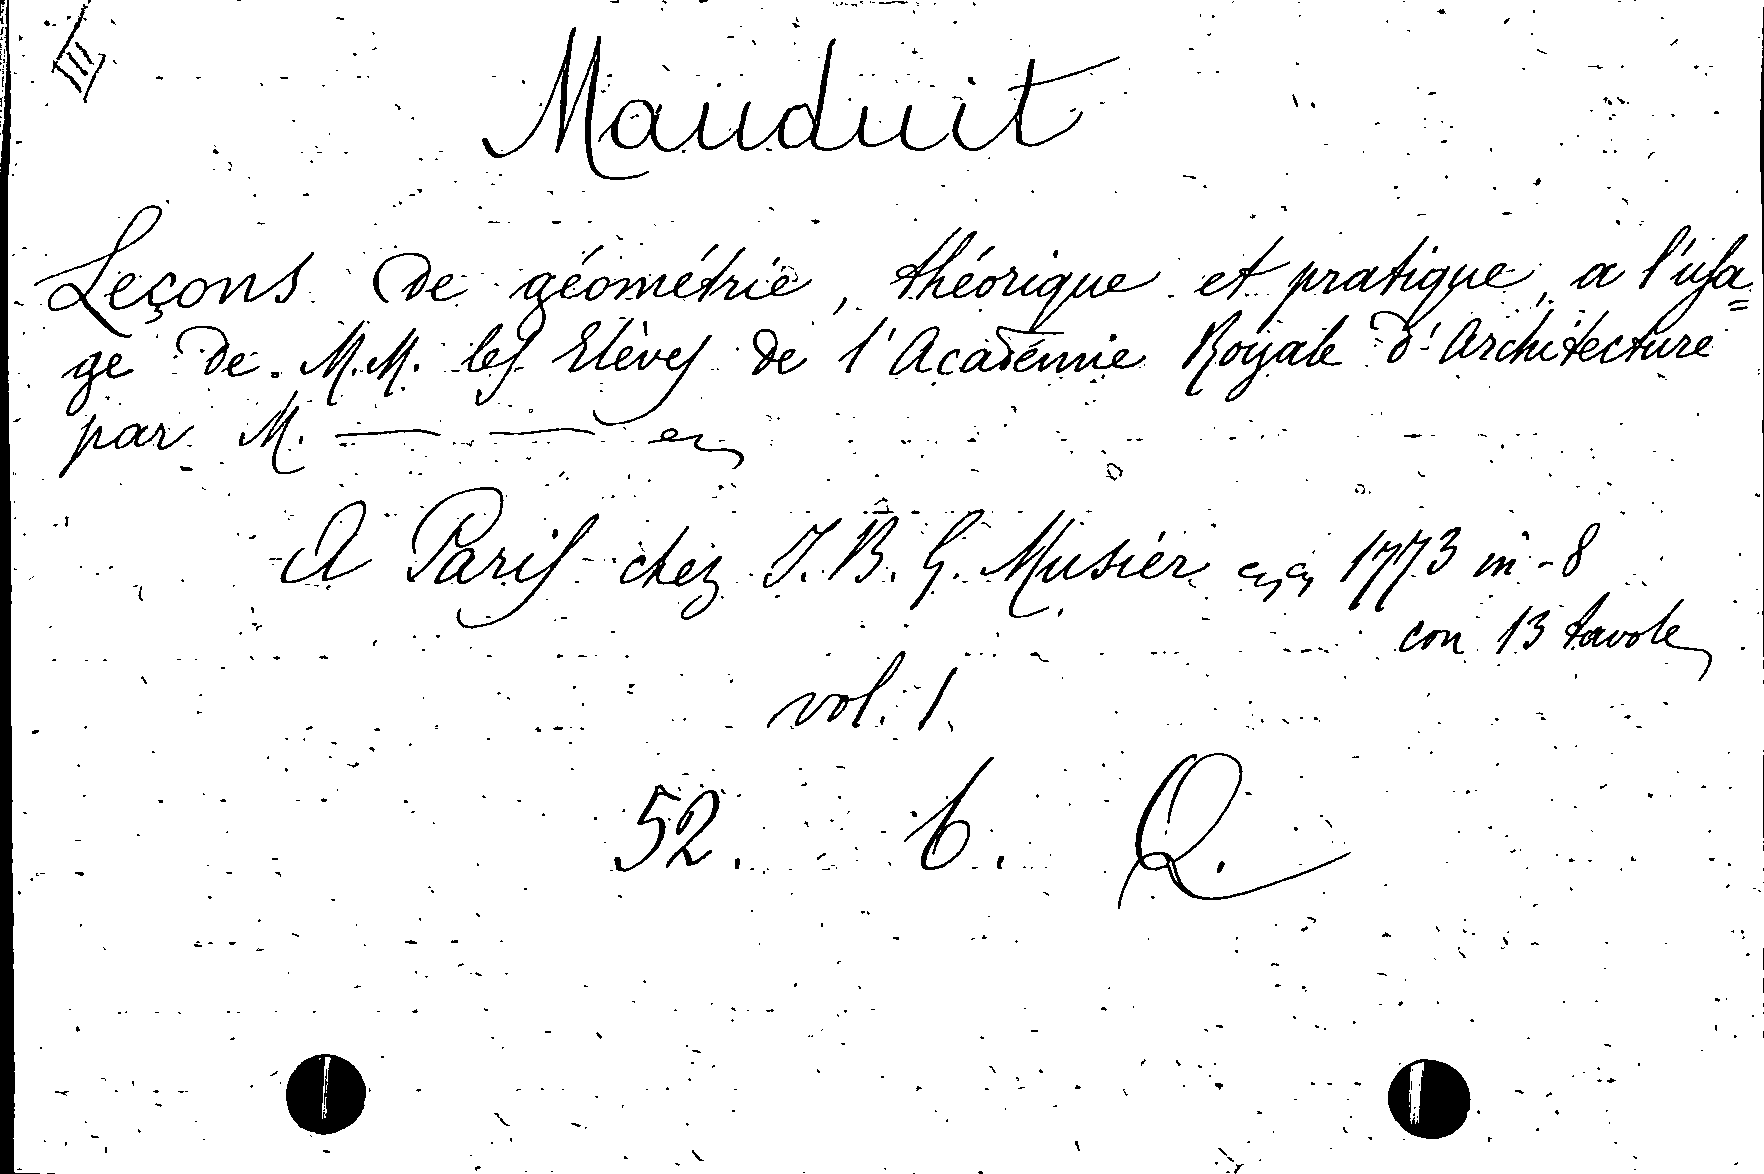 III
Mauduit
Leçons de géométrie, théorique et pratique, a l'usa=
ge de M.M. les Elèves de l'Académie Royale d'Architecture
par M. — —
A Paris chez J. B. G. Musier 1773 in-8
con 13 tavole
vol. 1.
52. 6. Q.